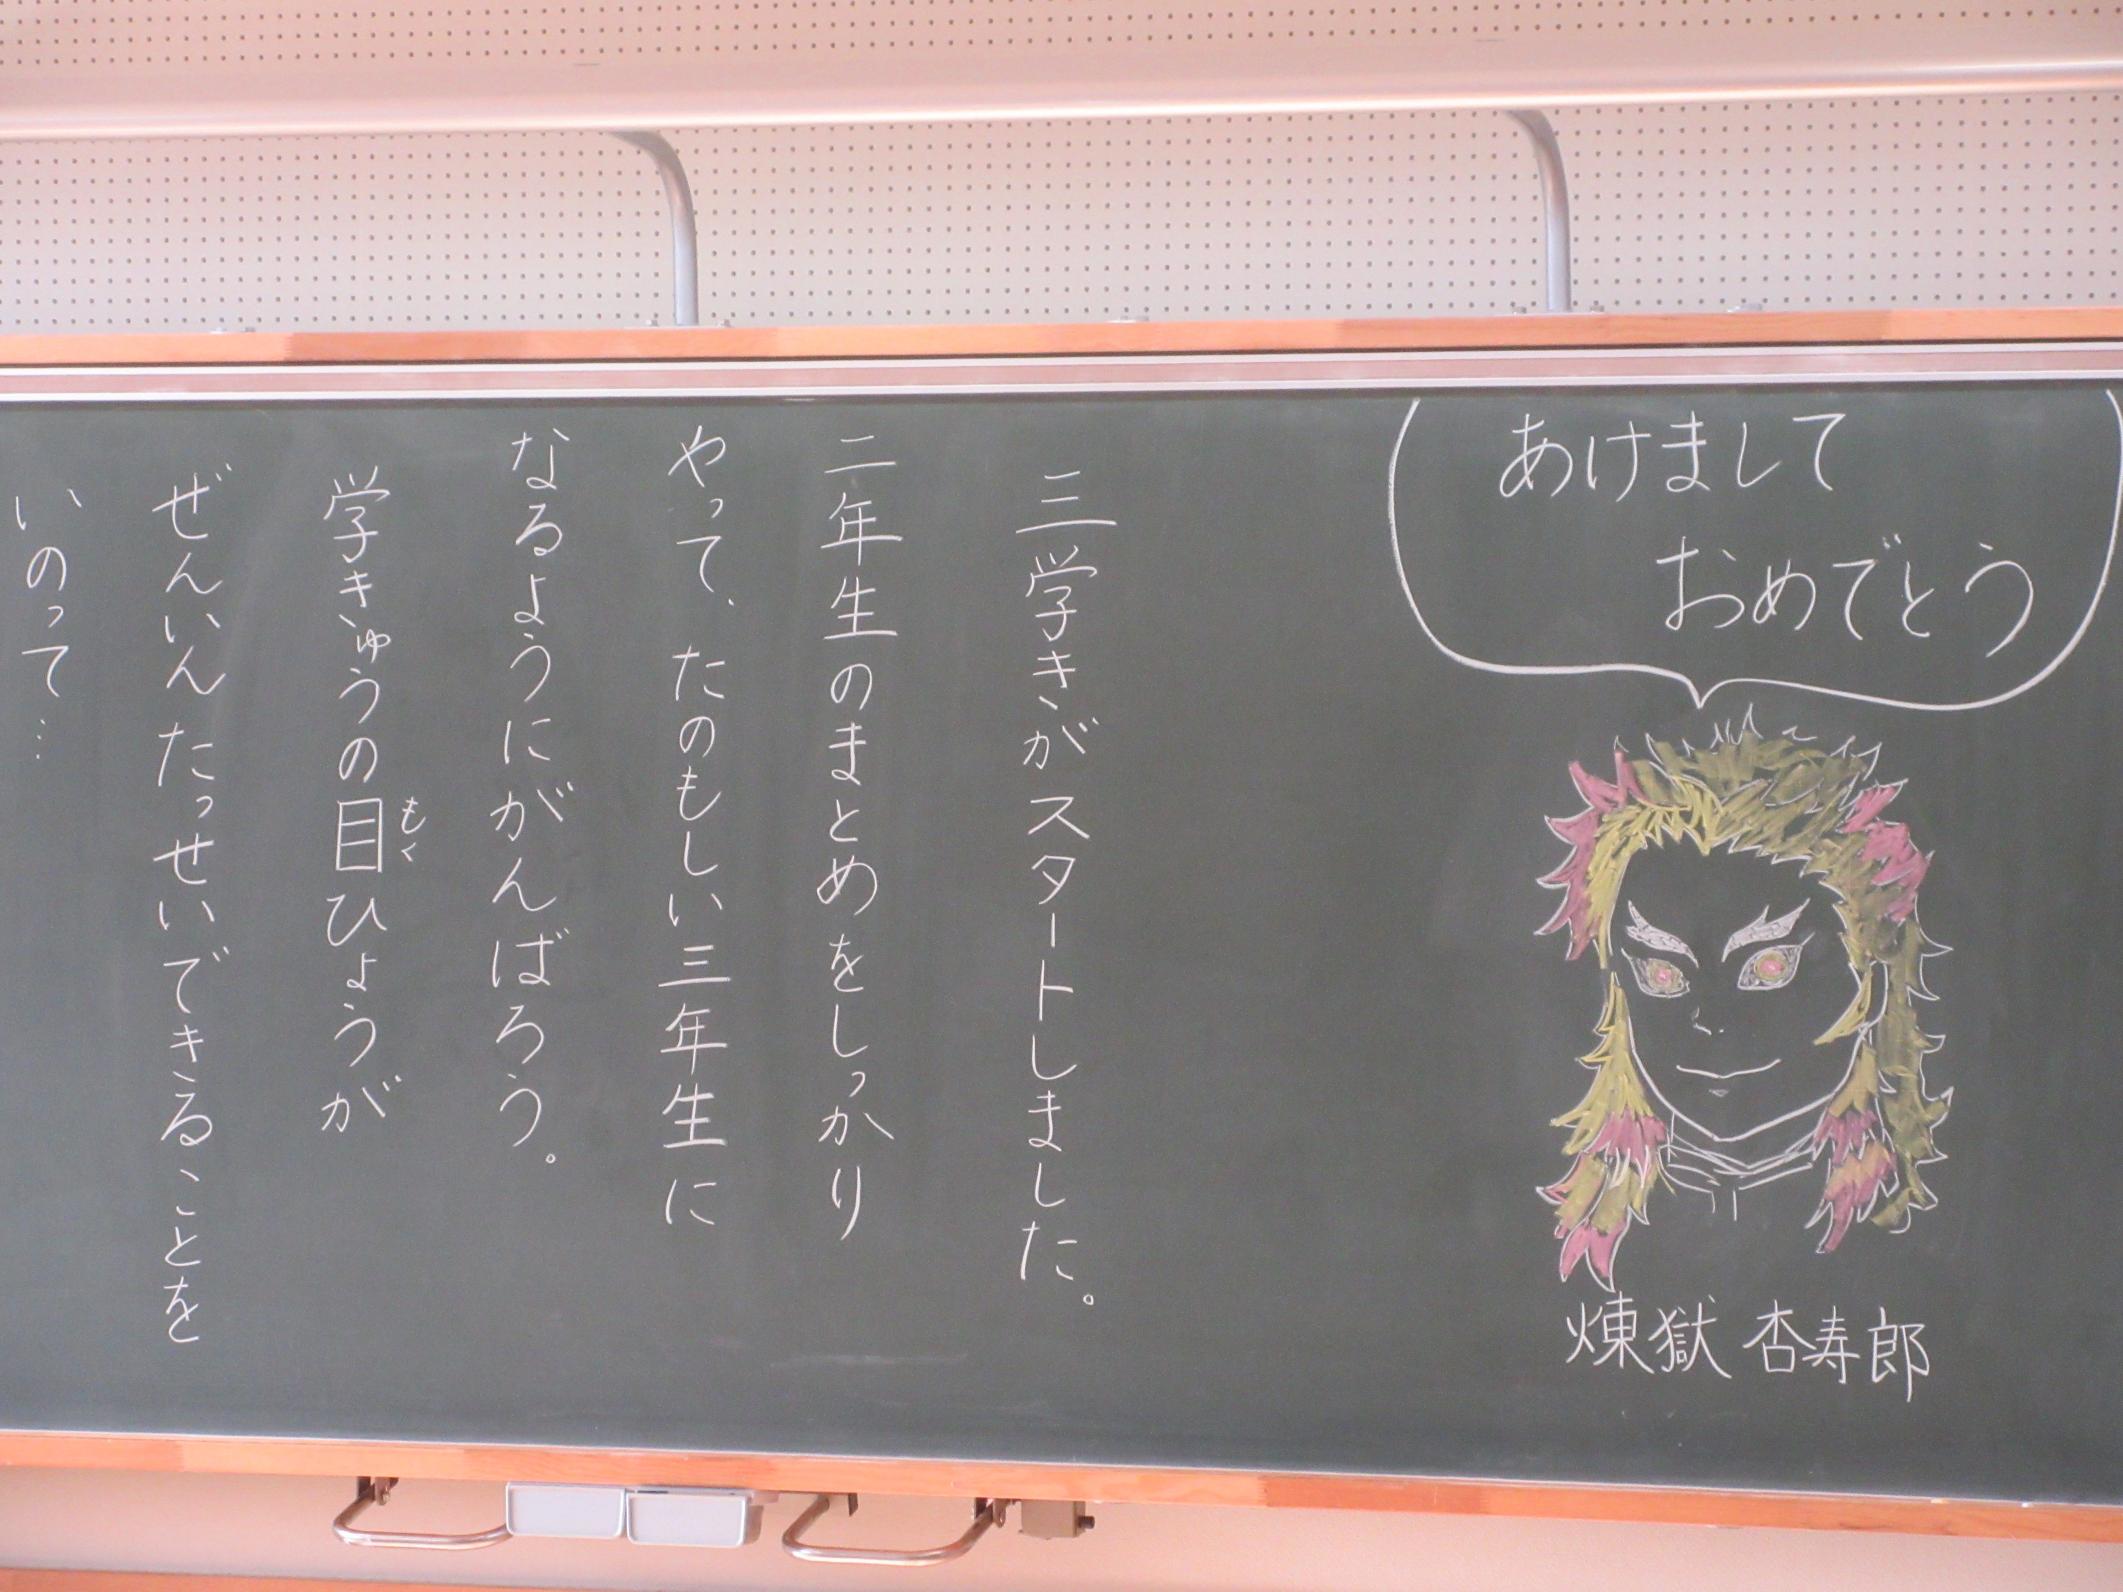 あけまして
おめでとう
煉獄 杏寿郎
三学きがスタートしました。
二年生のまとめをしっかり
やって、たのもしい三年生に
なるようにがんばろう。
学きゅうの目ひょうが
もく
ぜんいんたっせいできることを
いのって…